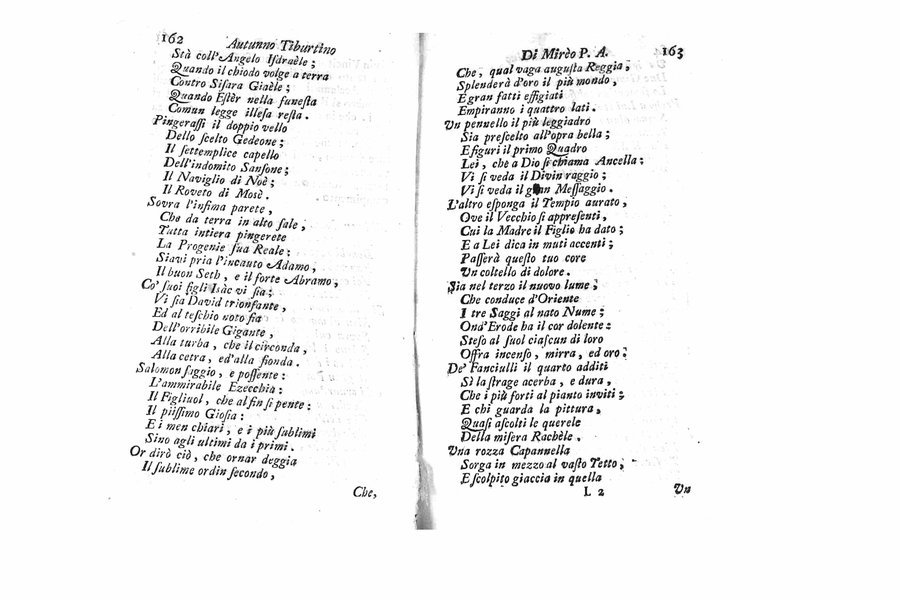 162 Autunno Tiburtino
Stà coll'Angelo Isdraèle;
Quando il chiodo volge a terra
Contro Sisara Giaèle;
Quando Estèr nella funesta
Comun legge illesa resta.
Pingerassi il doppio vello
Dello scelto Gedeone;
Il settemplice capello
Dell'indomito Sansone;
Il Naviglio di Noè;
Il Roveto di Mosè.
Sovra l'infima parete,
Che da terra in alto sale,
Tutta intiera pingerete
La Progenie sua Reale:
Siavi pria l'incauto Adamo,
Il buon Seth, e il forte Abramo,
Co' suoi figli Isàc vi sia;
Vi sia David trionfante,
Ed al teschio noto sia
Dell'orribile Gigante,
Alla turba, che il circonda,
Alla cetra, ed'alla fionda.
Salomon saggio, e possente:
L'ammirabile Ezecchia:
Il Figliuol, che alfin si pente:
Il piissimo Giosia:
E i men chiari, e i più sublimi
Sino agli ultimi da i primi.
Or dirò ciò, che ornar deggia
Il sublime ordin secondo,
Che,
Di Mirèo P. A. 163
Che, qual vaga augusta Reggia,
Splenderà d'oro il più mondo,
E gran fatti effigiati
Empiranno i quattro lati.
Un pennello il più leggiadro
Sia prescelto all'opra bella;
E figuri il primo Quadro
Lei, che a Dio si chiama Ancella;
Vi si veda il Divin raggio;
Vi si veda il gran Messaggio.
L'altro esponga il Tempio aurato,
Ove il Vecchio si appresenti,
Cui la Madre il Figlio ha dato;
E a Lei dica in muti accenti;
Passerà questo tuo core
Un coltello di dolore.
Sia nel terzo il nuovo lume;
Che conduce d'Oriente
I tre Saggi al nato Nume;
Ond'Erode ha il cor dolente:
Steso al suol ciascun di loro
Offra incenso, mirra, ed oro:
De' Fanciulli il quarto additi
Sì la strage acerba, e dura,
Che i più forti al pianto inviti;
E chi guarda la pittura,
Quasi ascolti le querele
Della misera Rachèle.
Una rozza Capannella
Sorga in mezzo al vasto Tetto;
E scolpito giaccia in quella
L 2 Un